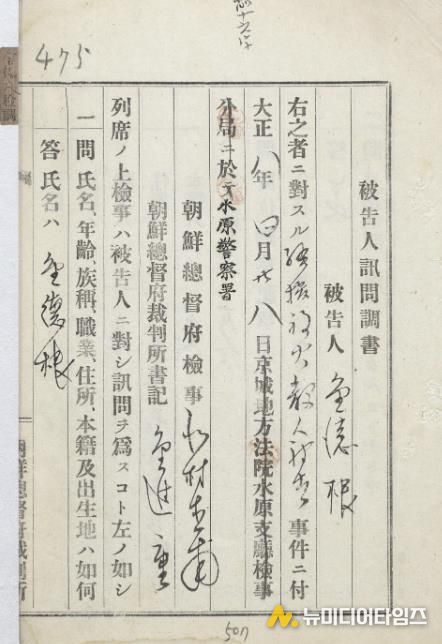 475
被告人訊問調書
被告人 金德根
右之者ニ對スル騷擾放火殺人 事件ニ付
大正八年四月廿八日京城地方法院水原支廳檢事
分局ニ於テ水原警察署
朝鮮總督府檢事
朝鮮總督府裁判所書記
列席ノ上檢事ハ被告人ニ對シ訊問ヲ爲スコト左ノ如シ
一問 氏名、年齡、族稱、職業、住所、本籍及出生地ハ如何
答 氏名ハ 金德根
朝鮮總督府裁判所
507
뉴미디어타임즈